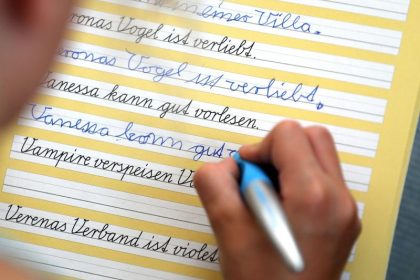 in einer Villa.
ronas Vogel ist verliebt.
eronas Vogel ist verliebt.
Vanessa kann gut vorlesen.
Vanessa kann gut
Vampire verspeisen
Verenas Verband ist violet